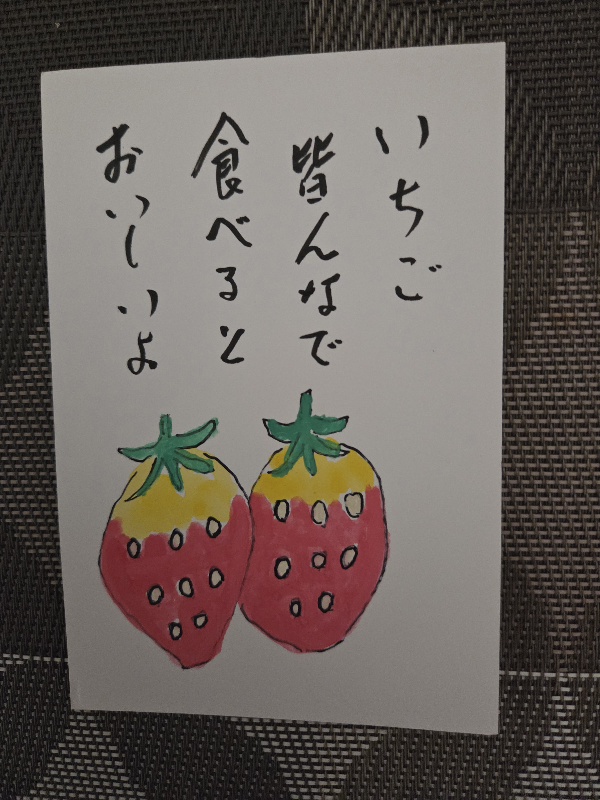 いちご
皆んなで
食べると
おいしいよ